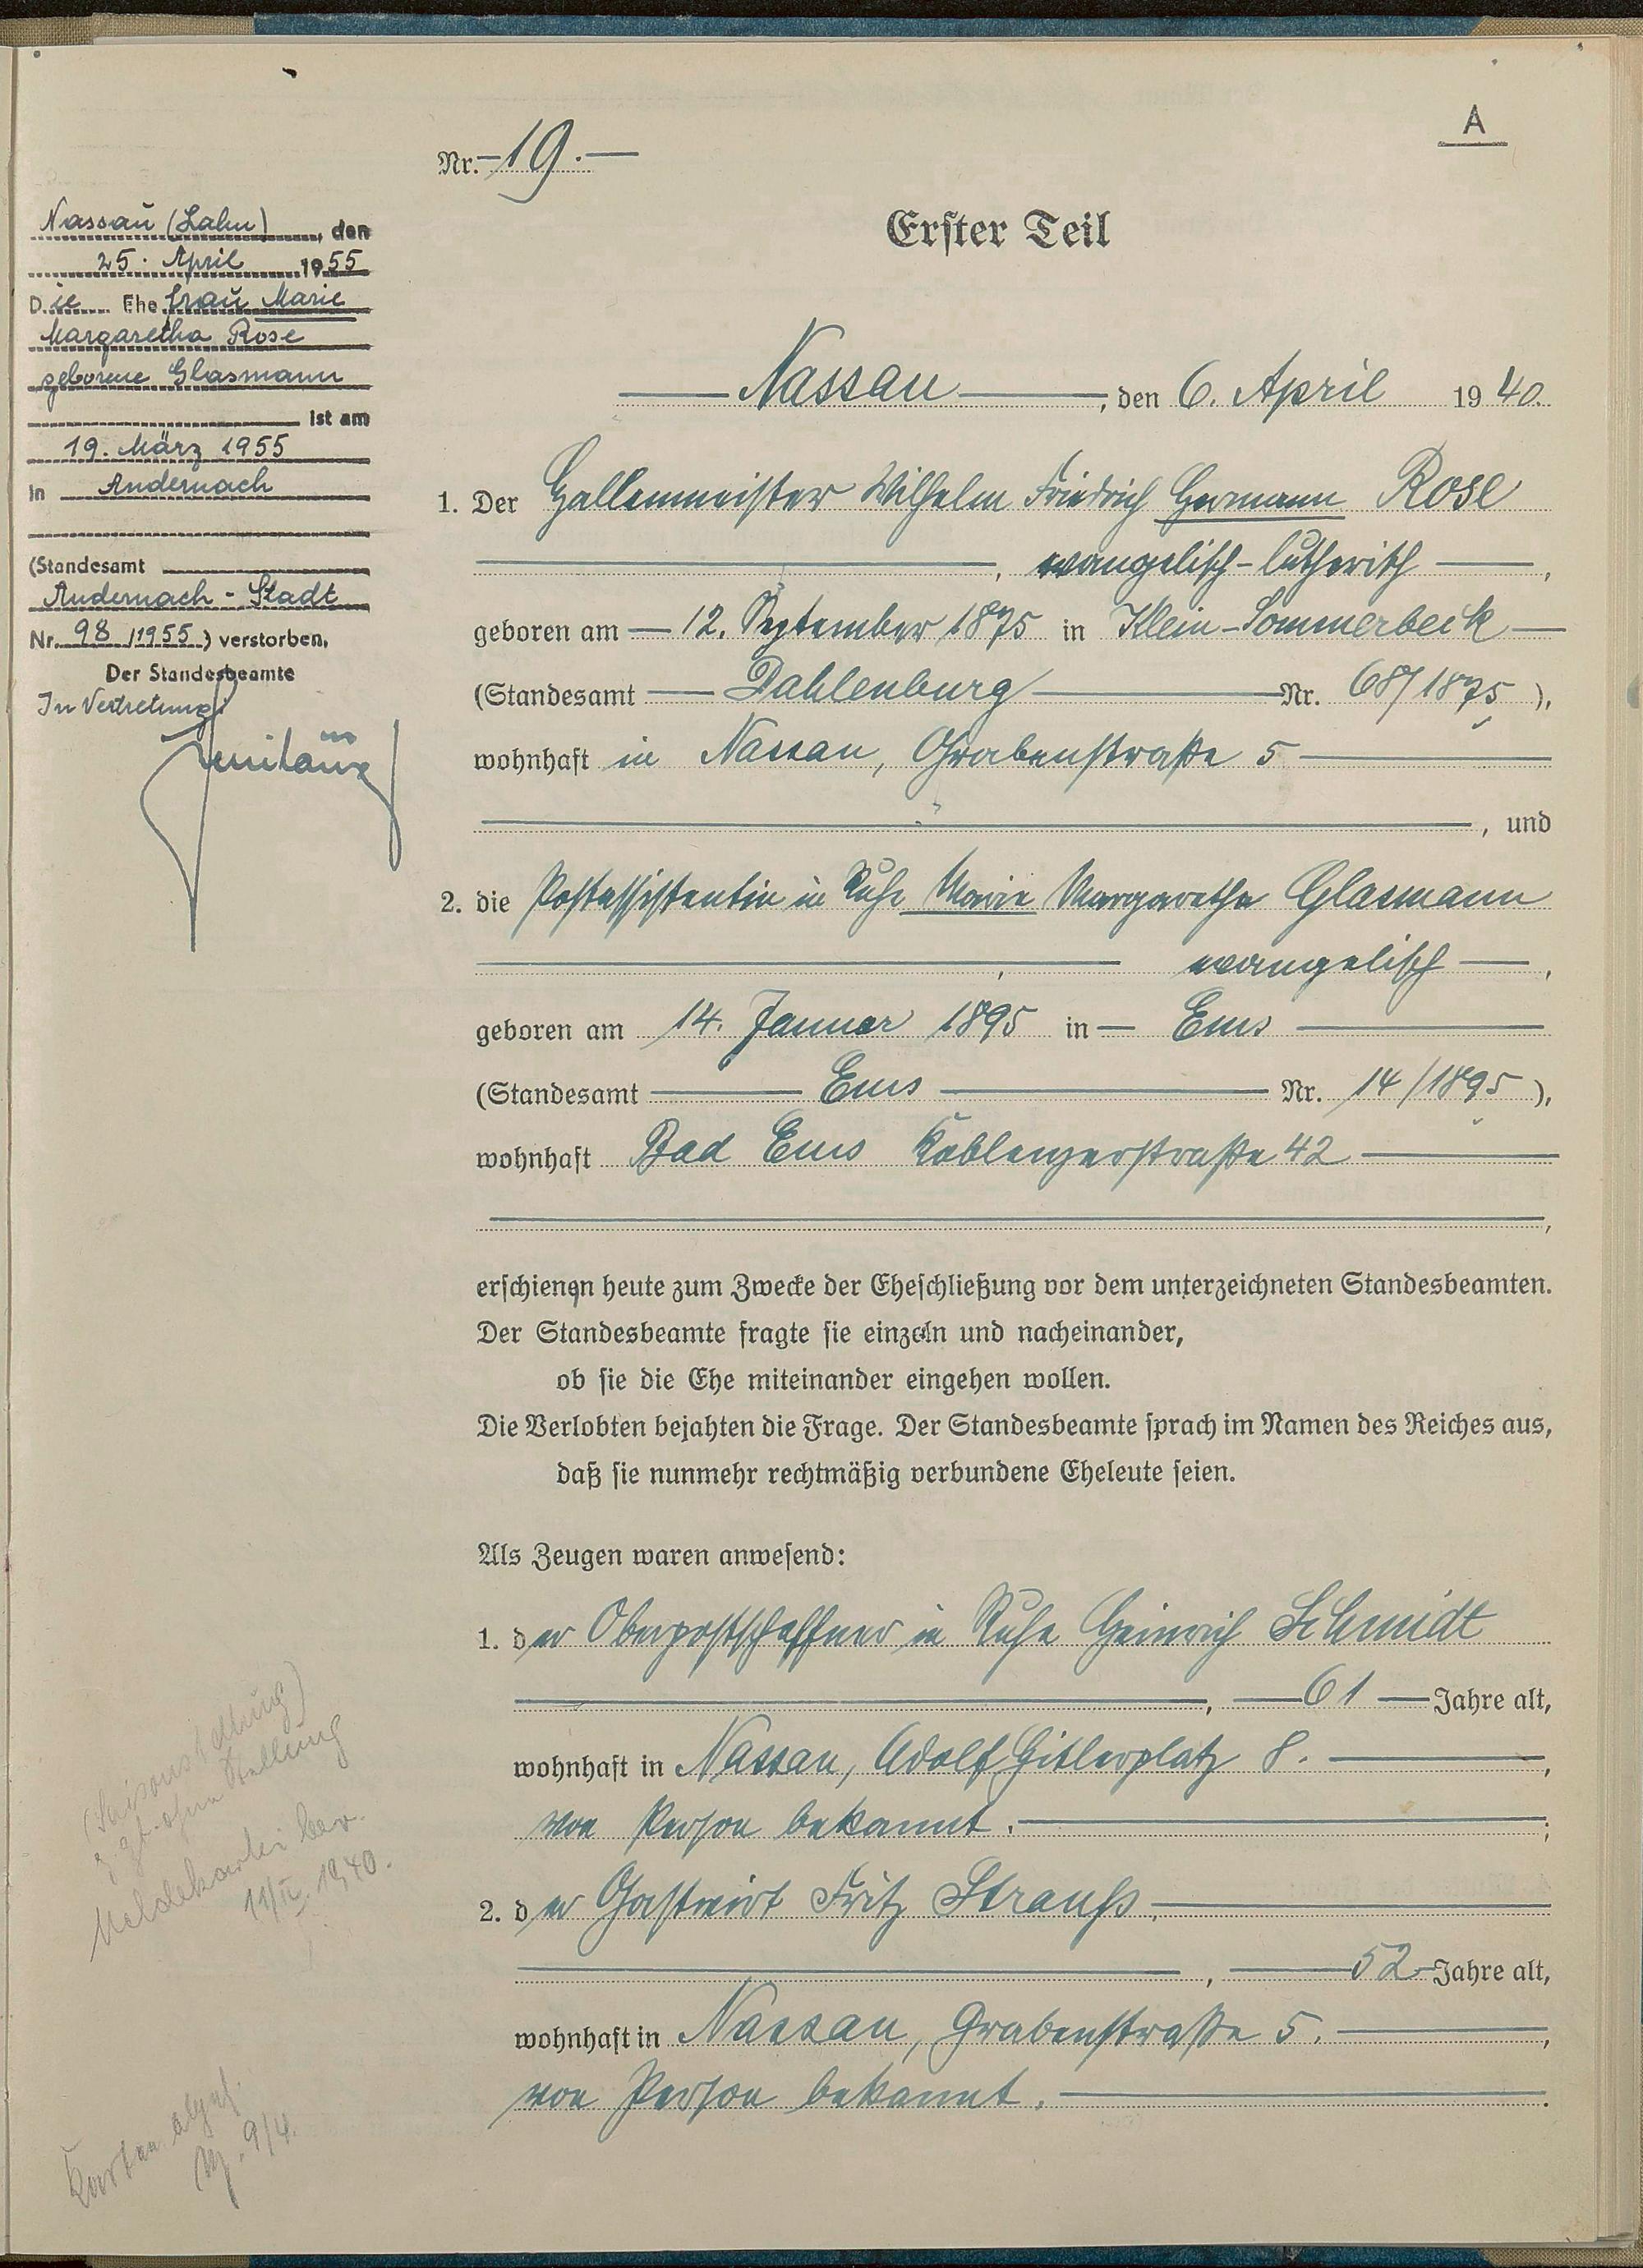 A
Nr. 19.
Erster Teil
Nassau (Lahn), den
25. April 1955
Die Ehefrau Marie
Margaretha Rose
geborene Glasmann
ist am
19. März 1955
in Andernach
(Standesamt
Andernach - Stadt
Nr. 98/1955) verstorben.
Der Standesbeamte
In Vertretung:
Nassau, den 6. April 1940.
1. Der Hallenmeister Wilhelm Friedrich Hermann Rose
, evangelisch-lutherisch,
geboren am 12. September 1875 in Klein-Sommerbeck
(Standesamt Dahlenburg Nr. 68/1875),
wohnhaft in Nassau, Grabenstraße 5
, und
2. die Postassistentin in Ruhe Marie Margaretha Glasmann
, evangelisch,
geboren am 14. Januar 1895 in Ems
(Standesamt Ems Nr. 14/1895),
wohnhaft Bad Ems Koblenzerstraße 42
,
erschienen heute zum Zwecke der Eheschließung vor dem unterzeichneten Standesbeamten.
Der Standesbeamte fragte sie einzeln und nacheinander,
ob sie die Ehe miteinander eingehen wollen.
Die Verlobten bejahten die Frage. Der Standesbeamte sprach im Namen des Reiches aus,
daß sie nunmehr rechtmäßig verbundene Eheleute seien.
Als Zeugen waren anwesend:
1. der Oberpostschaffner in Ruhe Heinrich Schmidt
, 61 Jahre alt,
wohnhaft in Nassau, Adolf Hitlerplatz 8.,
von Person bekannt.;
2. der Gastwirt Fritz Strauß.
, 52 Jahre alt,
wohnhaft in Nassau, Grabenstraße 5.,
von Person bekannt.
ohne Stellung
Meldekartei ber.
11/IV. 1940.
Karten
9/4.